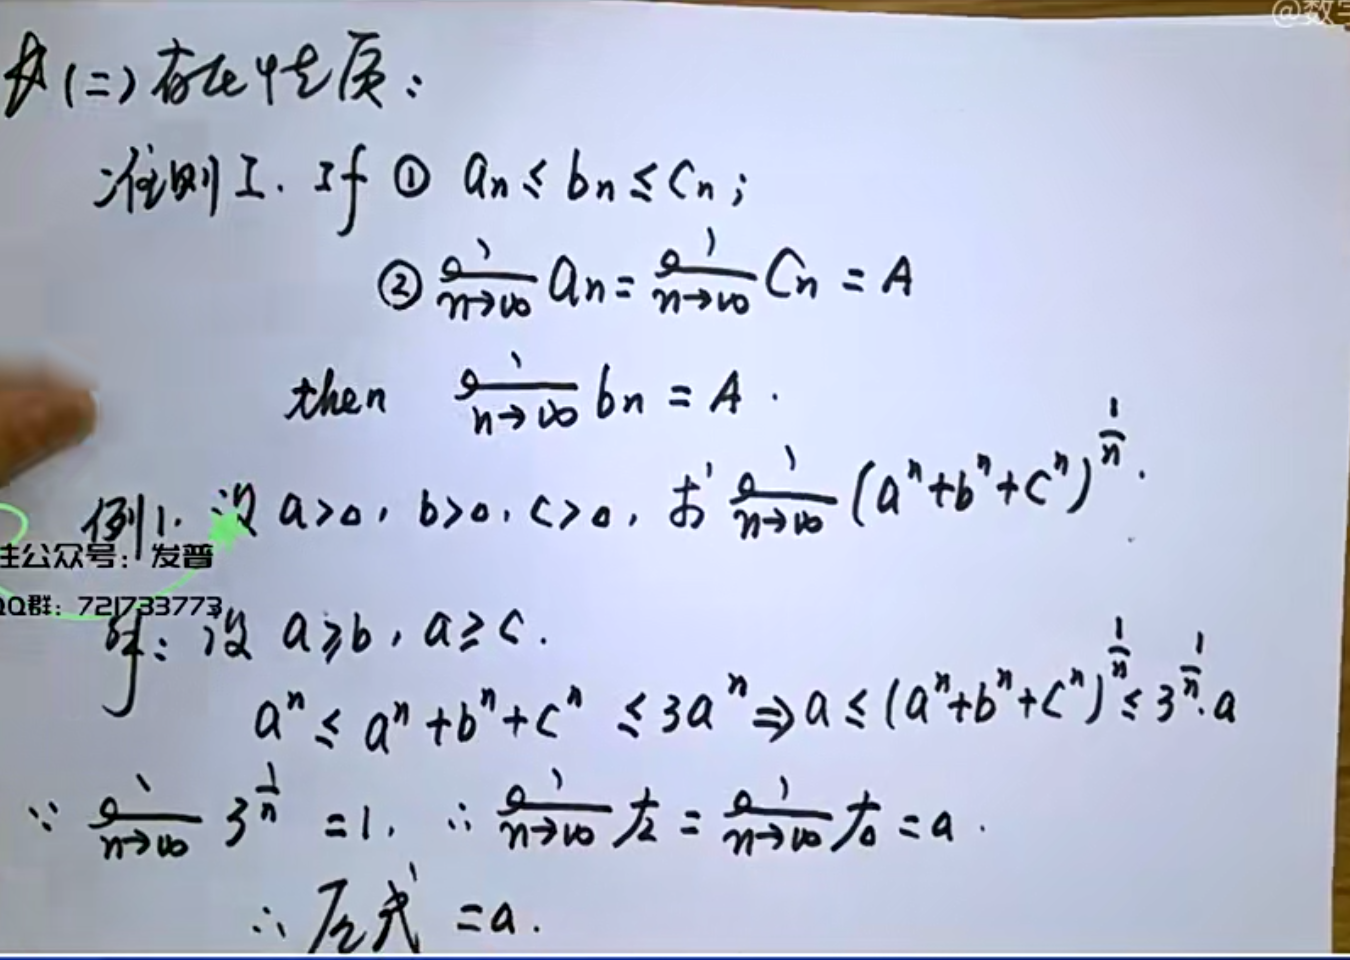 @数字
(二) 存在性质:
准则 I. If ① an ≤ bn ≤ Cn;
② lim n→∞ an = lim n→∞ Cn = A
then lim n→∞ bn = A.
例1. 设 a>0, b>0, c>0, 求 lim n→∞ (aⁿ+bⁿ+cⁿ)^(1/n).
注公众号: 发普
QQ群: 721733773
解: 设 a≥b, a≥c.
aⁿ ≤ aⁿ+bⁿ+cⁿ ≤ 3aⁿ ⇒ a ≤ (aⁿ+bⁿ+cⁿ)^(1/n) ≤ 3^(1/n)·a
∵ lim n→∞ 3^(1/n) = 1, ∴ lim n→∞ 左 = lim n→∞ 右 = a.
∴ 原式 = a.